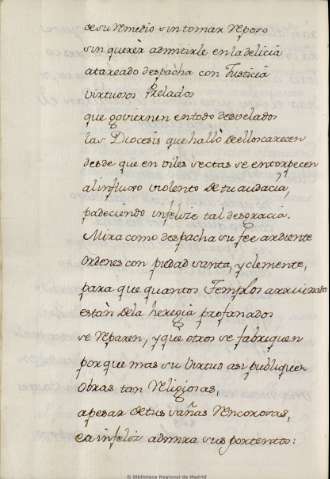 de su Remedio sin tomar Reposo
sin querer admitirle en la delicia
atareado despacha con Justicia
virtuosos Prelados
que goviernen en todo desvelados
las Diocesis que hallò de ellos carecen
desde que en viles sectas se entorpecen
al influxo violento de tu audacia,
padeciendo infeliz tal desgracia.
Mira como despacha su fee ardiente
Ordenes con piedad santa, y clemente,
para que quantos Templos arruinado
estàn de la heregia profanados
se Reparen, y que otros se fabriquen
porque mas su virtud asi publiquen
Obras tan Religiosas,
apesar de tus sañas Rencorosas,
ea infeliz admira sus portentos:
© Biblioteca Regional de Madrid